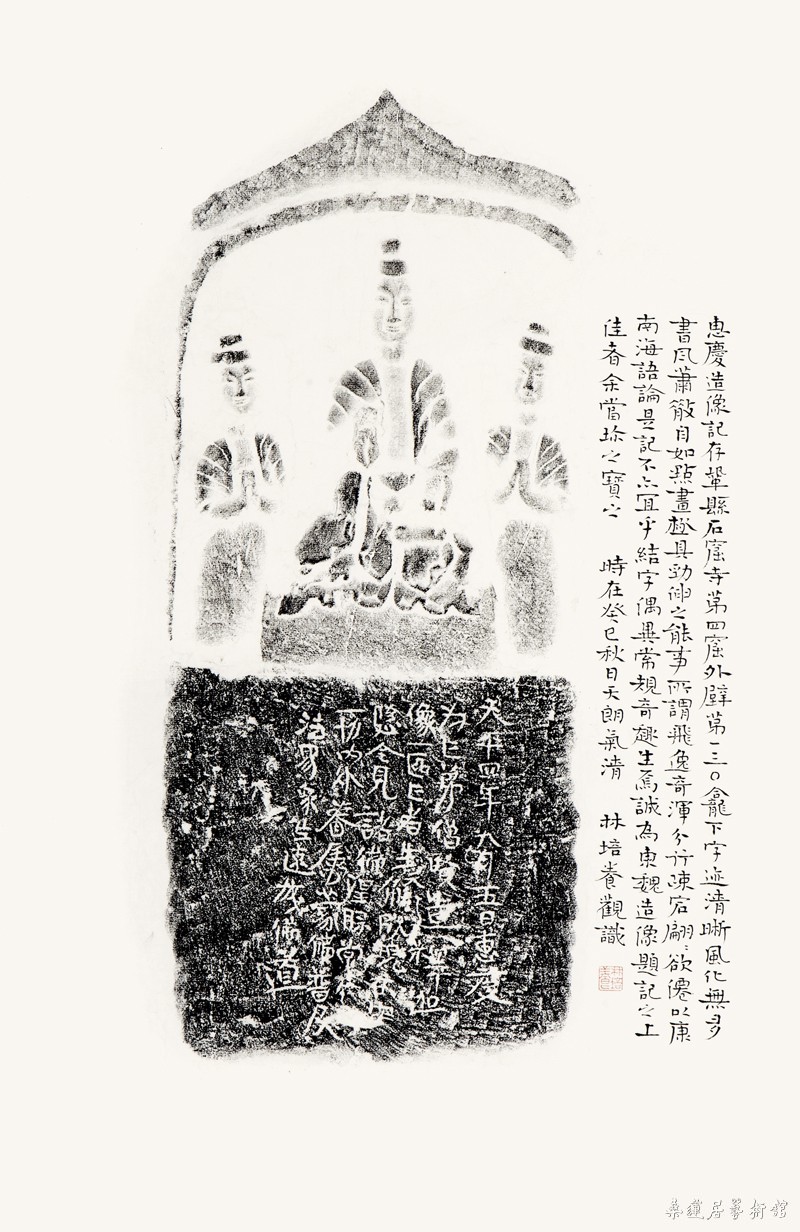 惠慶造像記存鞏縣石窟寺第四窟外壁第一三〇龕下字迹清晰風化無多
書風蕭散自如點畫極具勁之能事所謂飛逸奇渾分行疎宕翩〻欲僊以康
南海語論是記不亦宜乎結字偶異常規奇趣生焉誠為東魏造像題記之上
佳者余當珍之寶之 時在癸巳秋日天朗氣清 林培養觀識
天平四年九月五日惠慶
為亡弟僧造
像一區亡者
見諸佛
一切內外眷屬蒙佛普
法界眾生速成佛道
桑蓮居藝術館